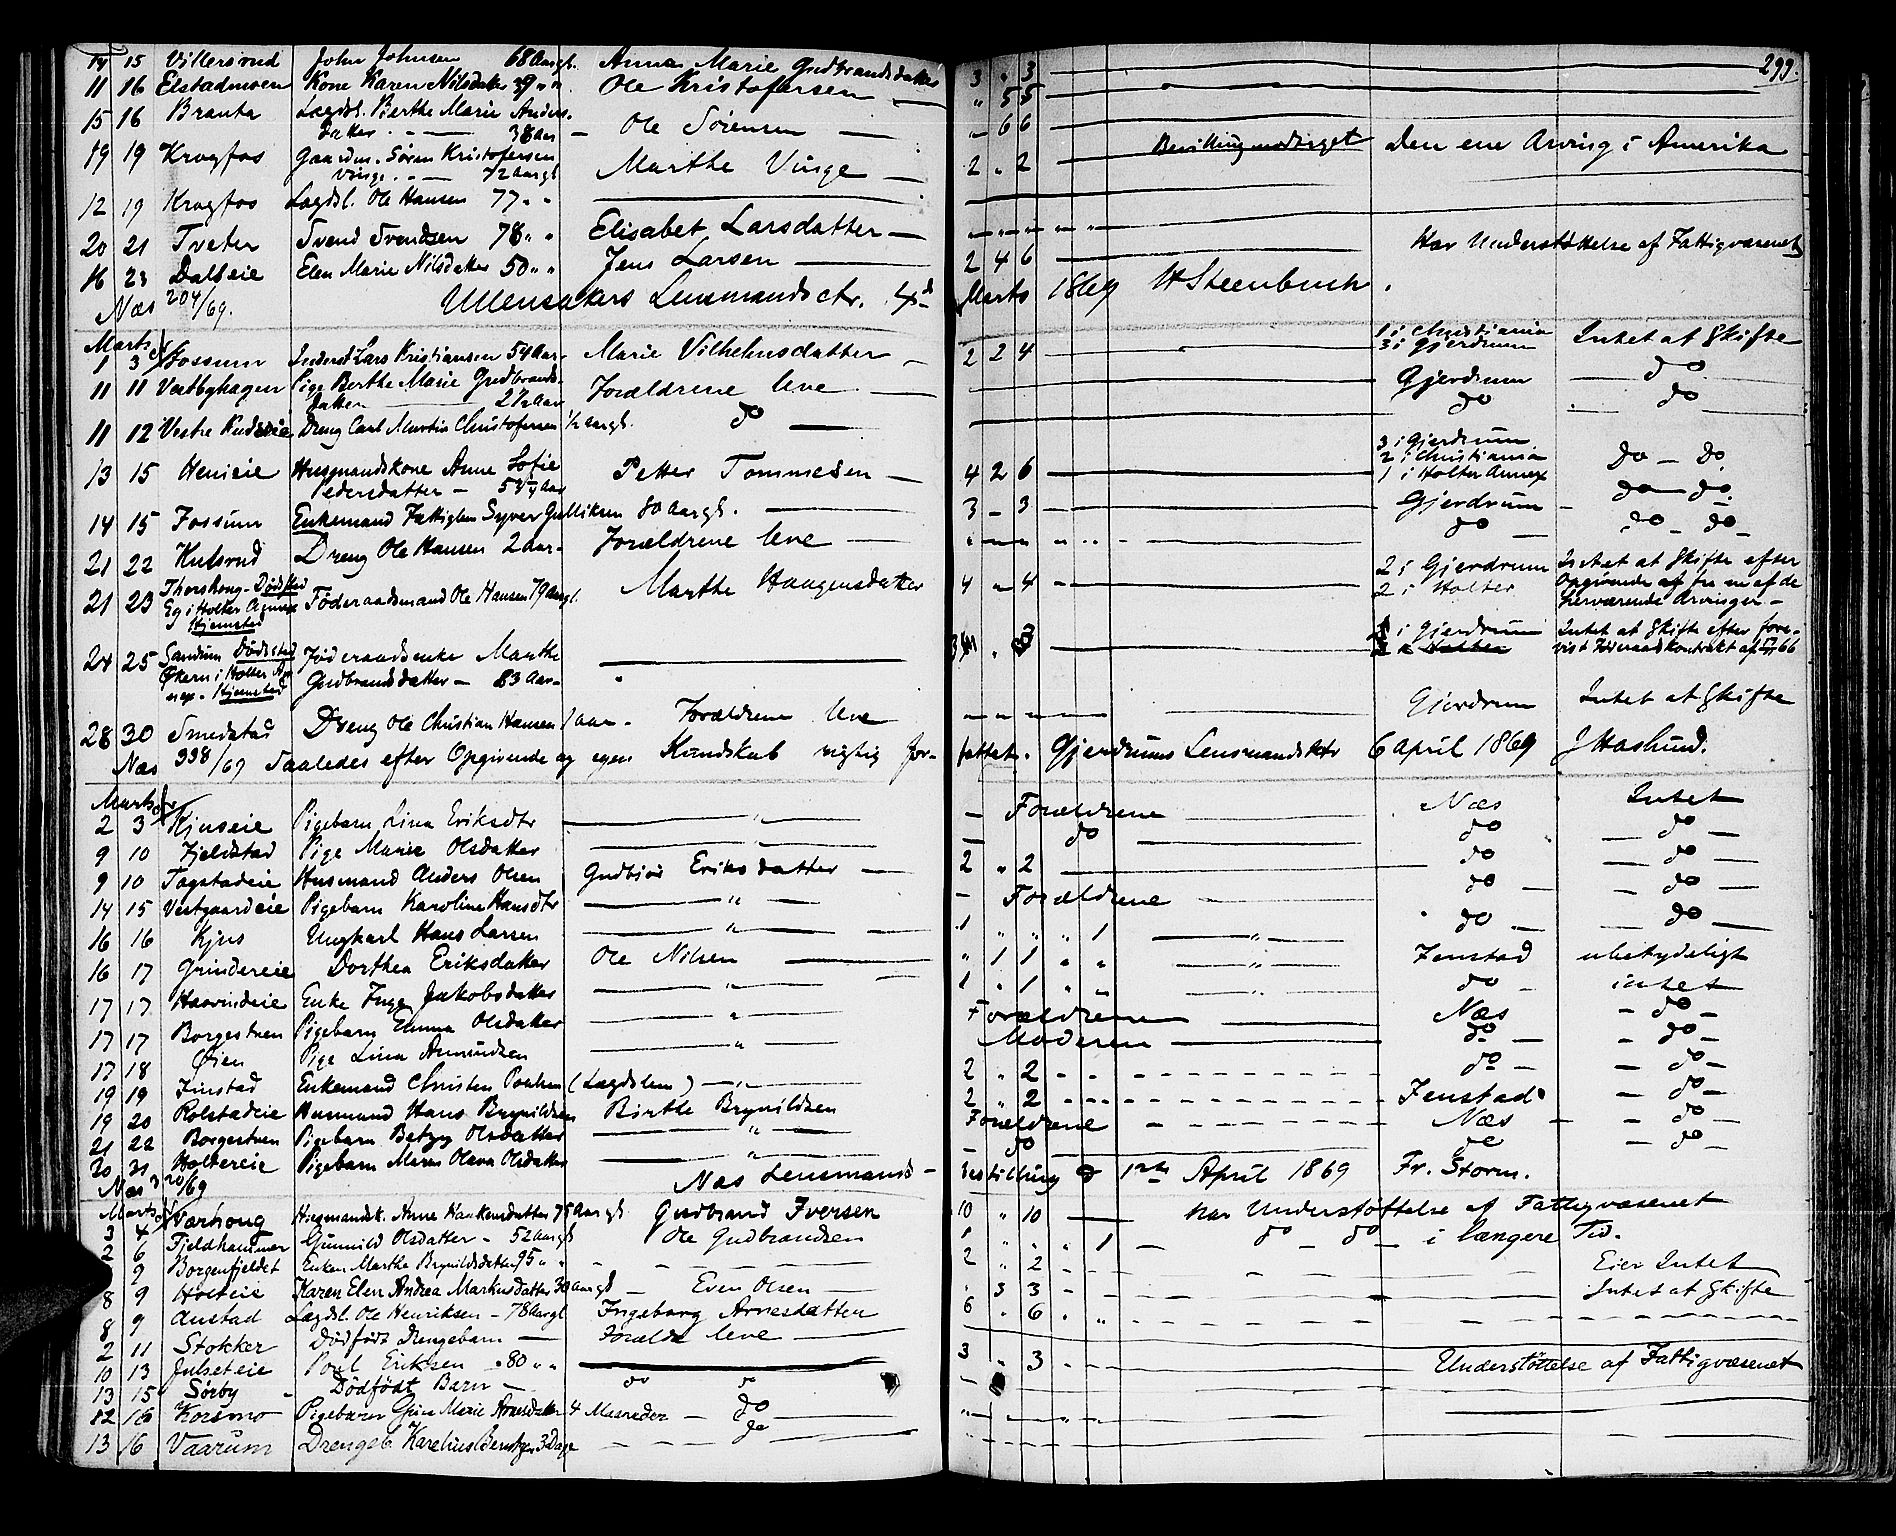 299.
14 15 Villersrud John Johnsen 68 Aargl. Anna Marie Gudbrandsdatter 3 " 3
11 16 Elstadmoen Kone Karen Nilsdatter 39 " " Ole Kristofersen " 5 5
15 16 Branta Lægdsl. Berthe Marie Anders-
datter 38 Aar Ole Sørensen - 6 6
19 19 Krogfos Gaardm. Søren Kristofersen
Vinge 72 Aargl Marthe Vinge 2 " 2 Bevilling modtaget Den ene Arving i Amerika
12 19 Krogfos Lægdsl. Ole Hansen 77 " "
20 21 Tveter Svend Svendsen 78 " " Elisabet Larsdatter
16 23 Dalseie Elen Marie Nilsdatter 50 " " Jens Larsen 2 4 6 Har Understøttelse af Fattigvæsenet
Næs 204/69. Ullensakers Lensmandsctr. 4d Marts 1869 H Steenbuch.
Marts
1 3 Fossum Inderst Lars Kristiansen 54 Aar Marie Vilhelmsdatter 2 2 4 1 i Christiania
3 i Gjerdrum Intet at Skifte
11 11 Vestbyhagen Pige Berthe Marie Gudbrands-
datter 2½ Aar Forældrene leve Gjerdrum do
11 12 Vestre Dreng Carl Martin Christofersen ½ aargl. do do do
13 15 Henieie Husmandskone Anne Sofie
Pedersdatter Petter Tommesen 4 2 6 3 i Gjerdrum
2 i Christiania
1 i Holter Annex do - do.
14 15 Fossum Enkemand Fattiglem Syver Gulliksen 80 Aargl. 3 - 3 Gjerdrum do do.
21 22 Kulsrud Dreng Ole Hansen 2 aar Forældrene leve do do - do
21 23 Thorshong - Dødsted
Eg i Holter Annex
Hjemsted Føderaadsmand Ole Hansen 79 Aargl. Marthe Haagensdatter 4 " 4 2 i Gjerdrum
2 i Holter Intet at Skifte efter
Opgivende af
herværende Arvinger
24 25 Sandum Dødsted
Økern i Holter An-
nex - Hjemsted Føderaadsenke Marthe
Gudbrandsdatter - 83 Aar i Gjerdrum Intet at Skifte efter fore-
vist Føderaadskontrakt af
28 30 Smedstad Dreng Ole Christian Hansen 1 aar Forældrene leve Gjerdrum Intet at Skifte
Næs 338/69 Saaledes efter Opgivende og egen Kundskab rigtig for- fattet. Gjerdrums Lensmandsktr 6 April 1869 J Haslund.
Marts
2 3 Kjuseie Pigebarn Lina Eriksdtr " Forældrene Næs Intet
9 10 Fjeldstad Pige Marie Olsdatter " do do do
9 10 Tagstadeie Husmand Anders Olsen Gudbiør Eriksdatter 2 " 2 do do
14 15 Vestgaardeie Pigebarn Karoline Hansdtr " Forældrene do do
16 16 Kjus Ungkarl Hans Larsen " 1 " " " 1 " do do
16 17 Grindereie Dorthea Eriksdatter Ole Nilsen " 1 1 " " " Fenstad ubetydeligt
17 17 Haavindeie Enke Inge Jakobsdatter " 1 " 1 " " " do intet
17 17 Borgestuen Pigebarn Emma Olsdatter " Forældrene Næs do
17 18 Øien Pige Lina Amundsen " Moderen do do
19 19 Finstad Enkemand Christen Poulsen (Lægdslem) " 2 " 2 do do
19 20 Rolstadeie Husmand Hans Brynildsen Birthe Brynildsen 2 " 2 Fenstad do
21 22 Borgestuen Pigebarn Betzy Olsdatter " Forældrene Næs do
30 31 Holtereie Pigebarn Maren Olava Olsdatter " do do do
Næs 320/69 Næs Lensmands- bestilling d 1ste April 1869 Fr. Storm.
Marts
3 4 Varhoug Husmandsk. Anne Haakensdatter 75 Aargl Gudbrand Iversen 10 " 10 har Understøttelse af Fattigvæsenet
2 6 Fjeldhammer Gunnild Olsdatter - 52 aargl Ole Gudbrandsen 1 " " " 1 do - do i længere Tid.
9 Borgenfjeldet Enken Marthe Brynildsdatter 95 " " 2 " 2 Eier Intet
8 9 Holteie Karen Elen Andrea Markusdatter 30 aargl Even Olsen " 3 3 Intet at Skifte
8 9 Austad Lægdsl Ole Henriksen - 78 Aargl Ingeborg Arnesdatter 6 " 6
2 11 Stokker Dødfødt Drengebarn Foreldr leve
10 13 Julseteie Poul Eriksen 80 " " 3 " 3 Understøttelse af Fattigvæsenet
13 15 Sørby Dødfødt Barn do do
12 16 Korsmo Pigebarn Marie Arnesdatter 4 Maaneder do
13 16 Vaarum Drengeb. Karelius Berntzen 3 Dage do